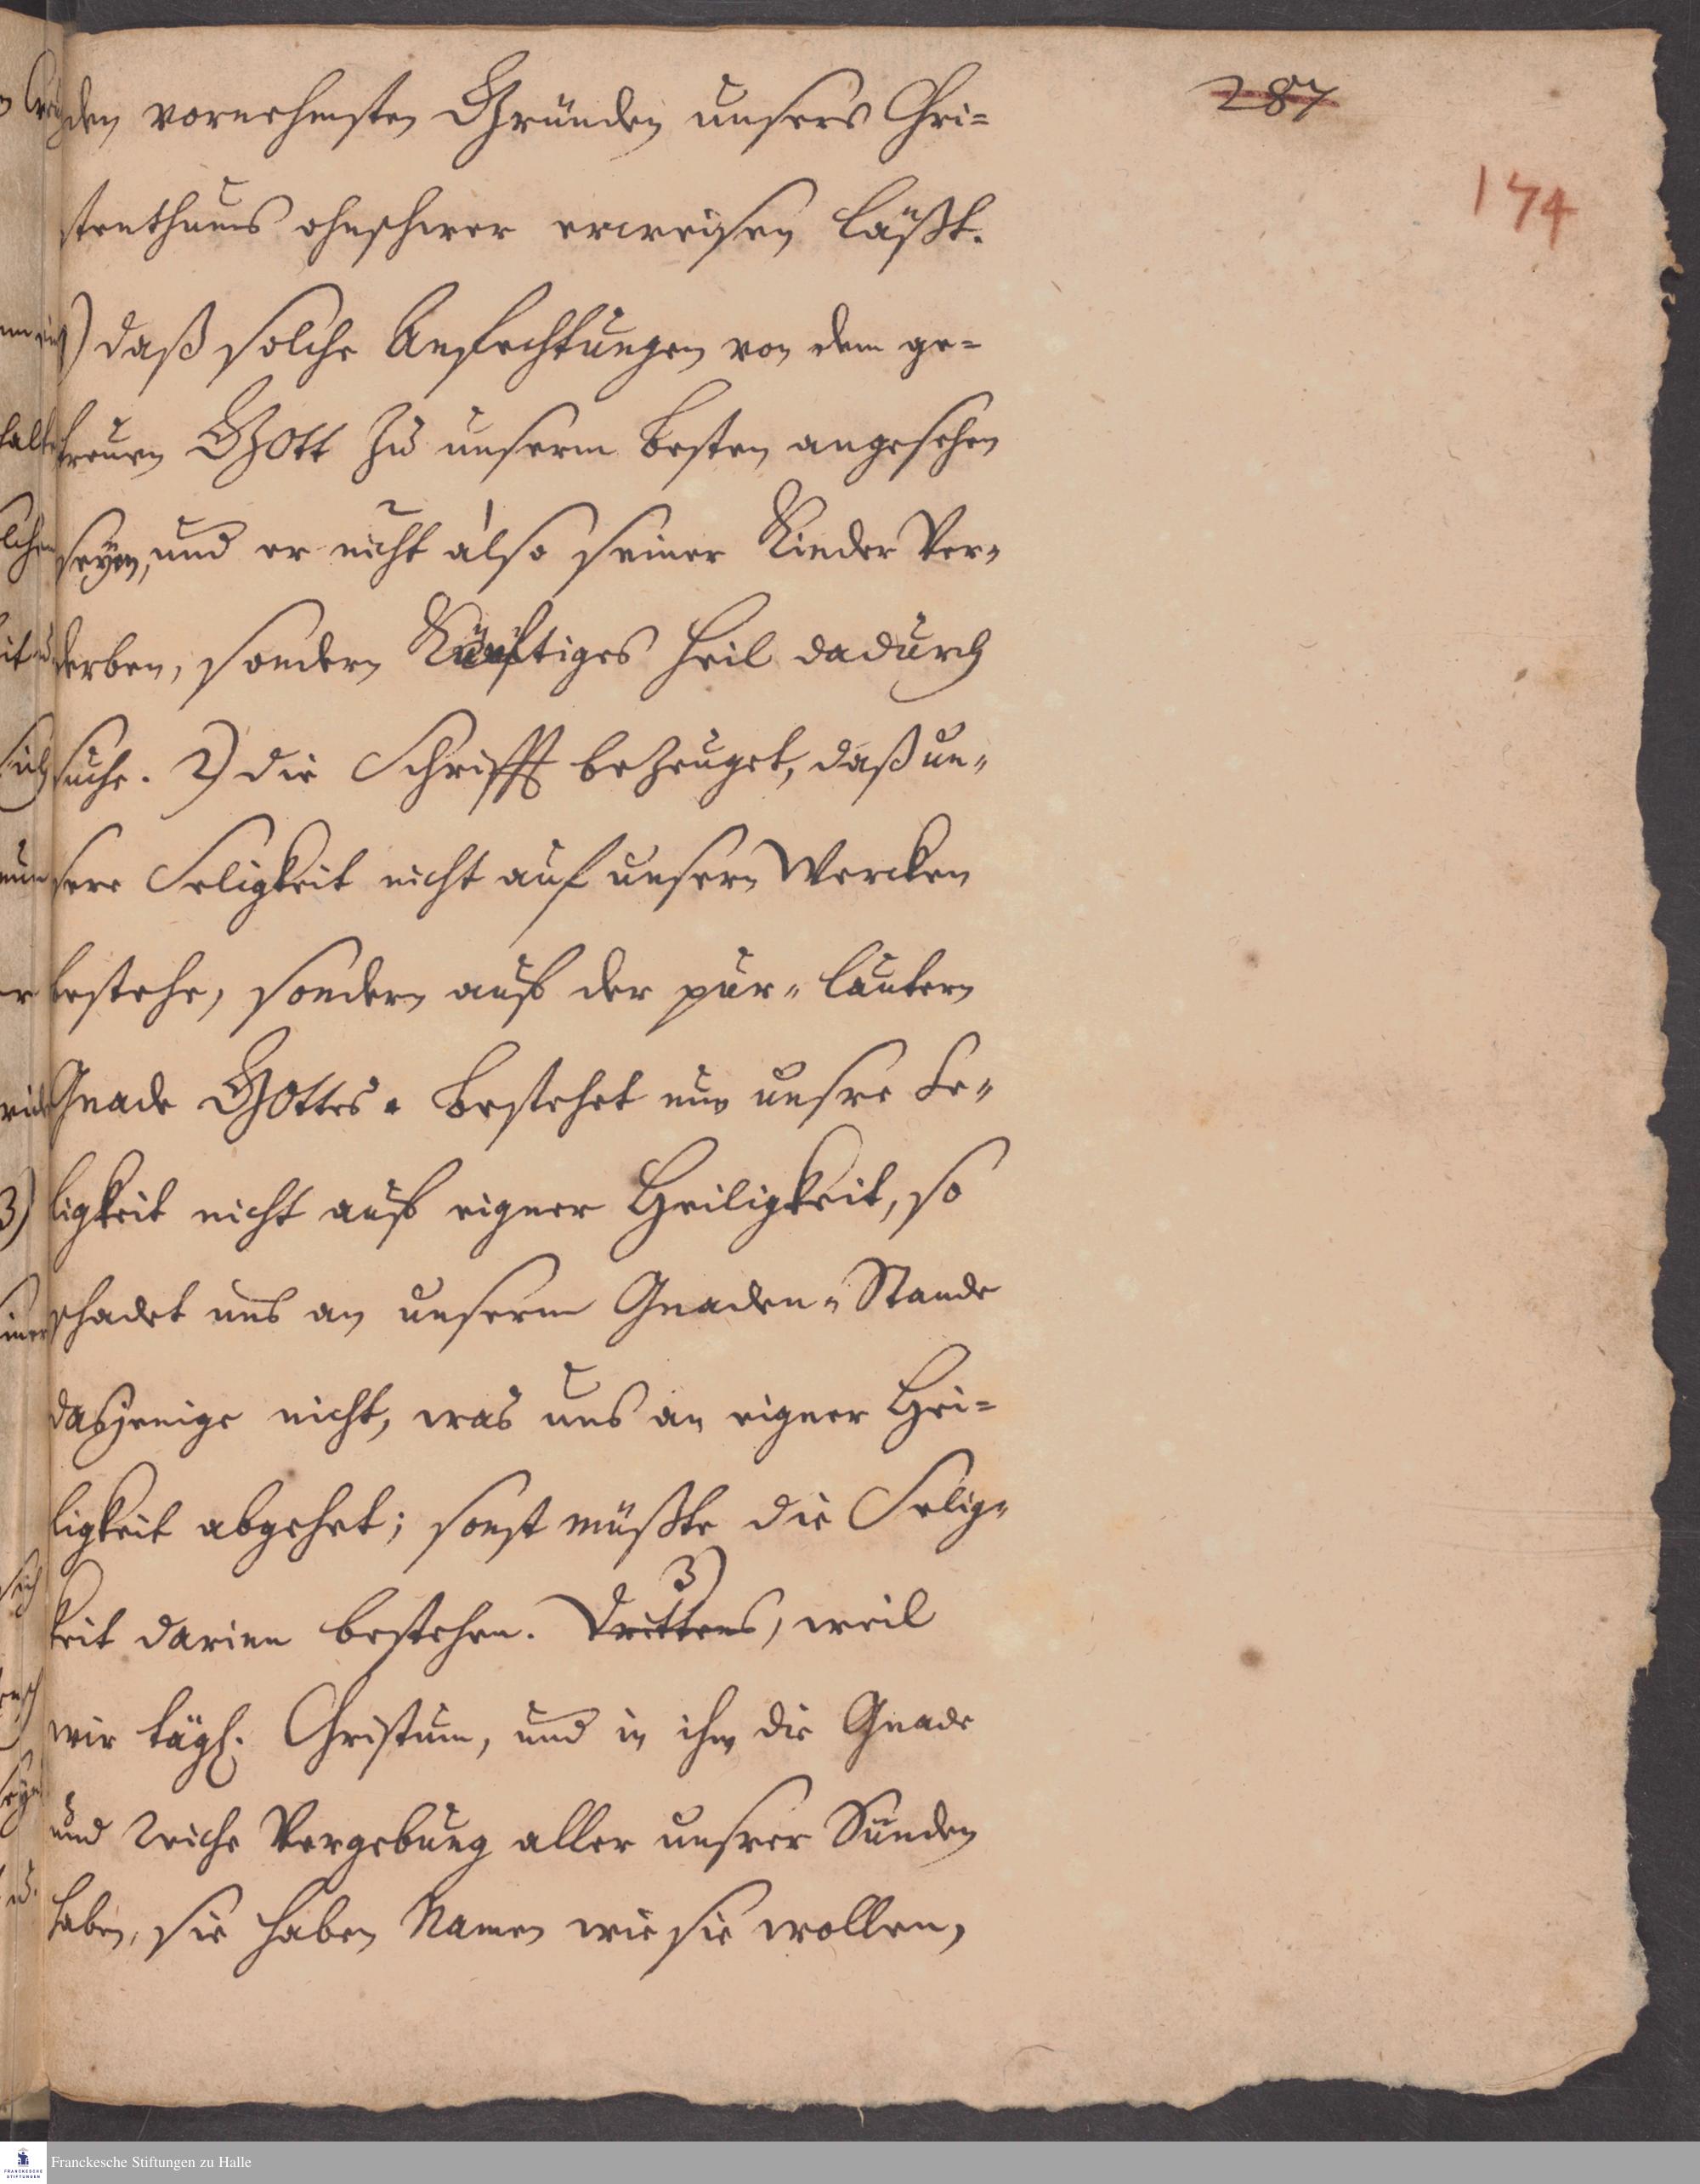 287
174
den vornehmsten Gründen unsers Chri=
stenthums ohnschwer erweisen läßt.
) daß solche Anfechtungen von dem ge=
treuen GOtt zu unserm besten angesehen
seyen, und er nicht also seiner Kinder Ver=
derben, sondern Künftiges Heil dadurch
suche. 2) die Schrifft bezeuget, daß un=
sere Seligkeit nicht auf unsern Wercken
bestehe, sondern auß der pur=lautern
Gnade GOttes. bestehet nun unsre Se=
ligkeit nicht auß eigner Heiligkeit, so
schadet uns an unserm Gnaden=Stande
dasjenige nicht, was uns an eigner Hei=
ligkeit abgehet; sonst müßte die Selig=
keit darinn bestehen. Drittens, 3) weil
wir tägl. Christum, und in ihm die Gnade
und reiche Vergebung aller unsrer Sünden
haben, sie haben Namen wie sie wollen,
Franckesche Stiftungen zu Halle